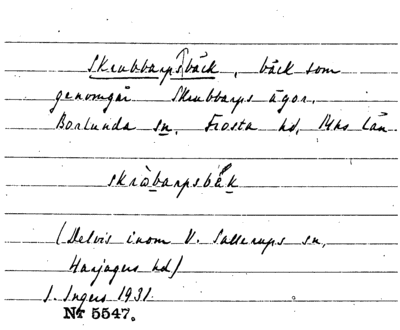 Skrubbarpsbäck, bäck som
genomgår Skrubbarps ägor.
Borlunda sn, Frosta hd, Mhs län
skròbarpsbäk
(Delvis inom V. Sallerups sn,
Harjagers hd)
I. Ingers 1931.
Nr 5547.